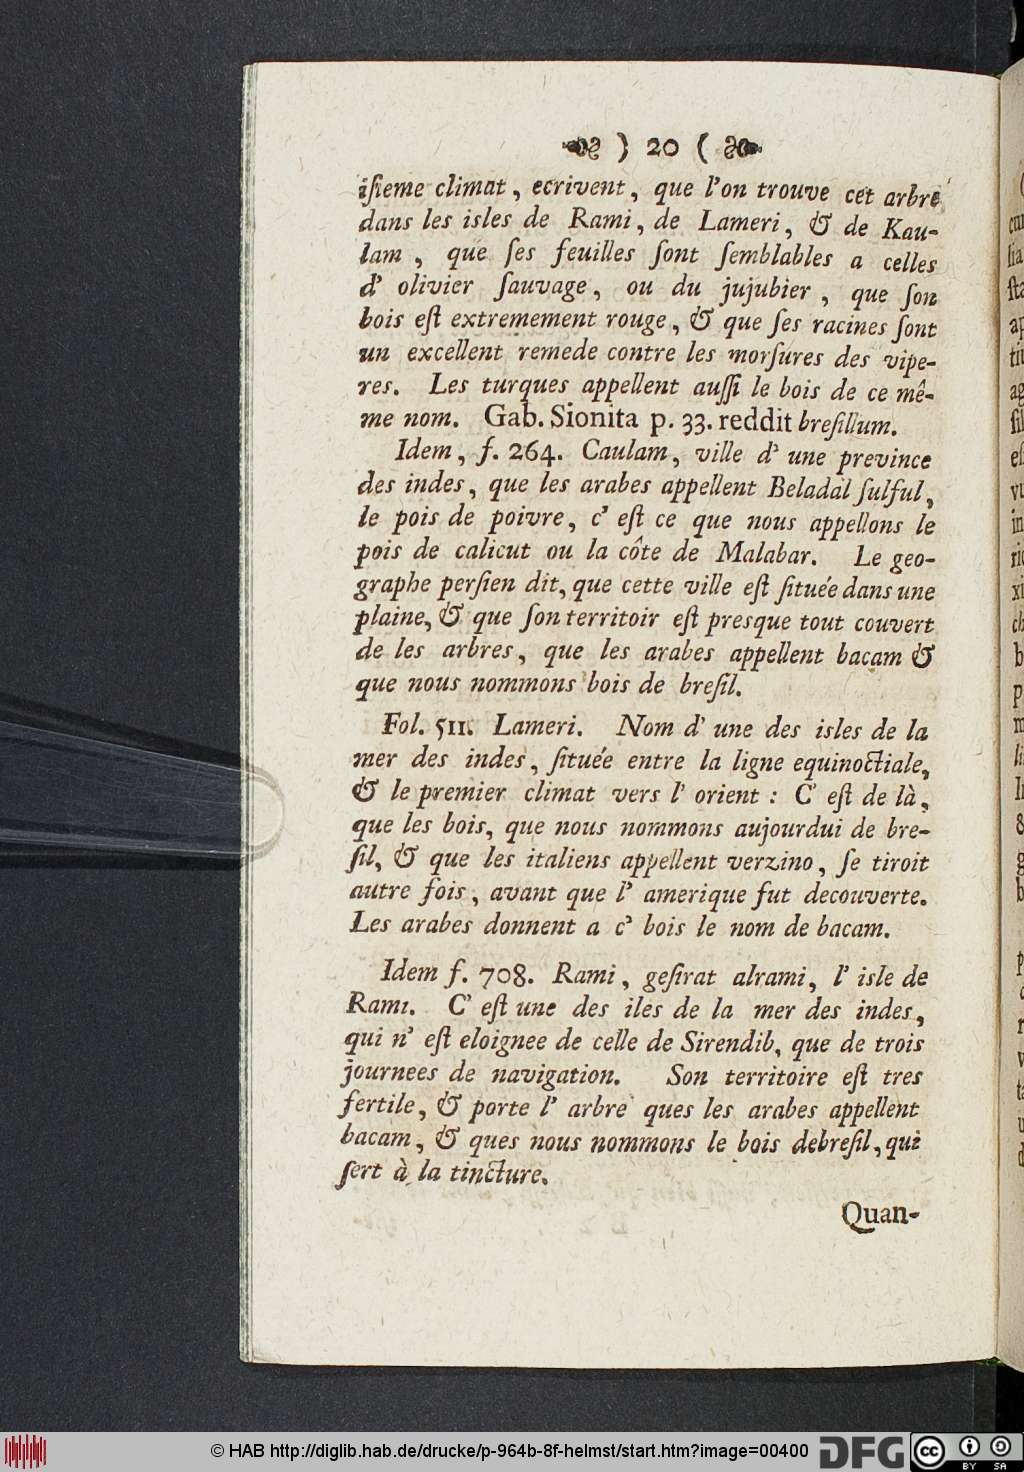 ) 20 (
iſieme climat, ecrivent, que l'on trouve cet arbre
dans les isles de Rami, de Lameri, & de Kau-
lam, que ſes feuilles ſont ſemblables a celles
d' olivier ſauvage, ou du jujubier, que ſon
bois eſt extremement rouge, & que ſes racines ſont
un excellent remede contre les morſures des vipe-
res. Les turques appellent auſſi le bois de ce mê-
me nom. Gab. Sionita p. 33. reddit breſillum.
Idem, f. 264. Caulam, ville d' une prevince
des indes, que les arabes appellent Beladal ſulful,
le pois de poivre, c' eſt ce que nous appellons le
pois de calicut ou la côte de Malabar. Le geo-
graphe perſien dit, que cette ville eſt ſituée dans une
plaine, & que ſon territoir eſt presque tout couvert
de les arbres, que les arabes appellent bacam &
que nous nommons bois de breſil.
Fol. 511. Lameri. Nom d' une des isles de la
mer des indes, ſituée entre la ligne equinoctiale,
& le premier climat vers l' orient : C' eſt de là,
que les bois, que nous nommons aujourdui de bre-
ſil, & que les italiens appellent verzino, ſe tiroit
autre fois, avant que l' amerique fut decouverte.
Les arabes donnent a c' bois le nom de bacam.
Idem f. 708. Rami, geſirat alrami, l' isle de
Rami. C' eſt une des iles de la mer des indes,
qui n' eſt eloignee de celle de Sirendib, que de trois
journees de navigation. Son territoire eſt tres
fertile, & porte l' arbre ques les arabes appellent
bacam, & ques nous nommons le bois debreſil, qui
ſert à la tincture.
Quan-
© HAB http://diglib.hab.de/drucke/p-964b-8f-helmst/start.htm?image=00400
DFG
cc BY SA